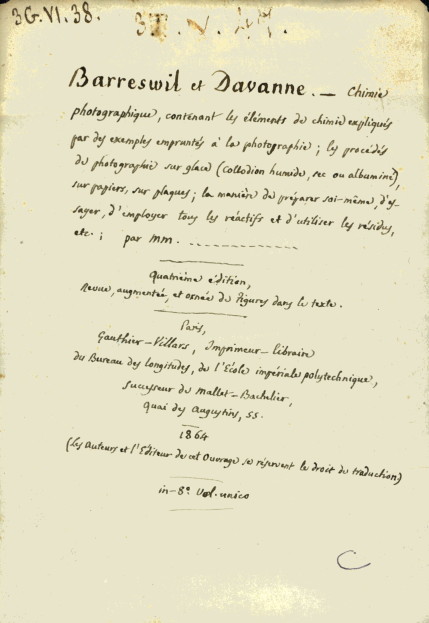 3G.VI.38.
Barreswil et Davanne. — Chimie
photographique, contenant les éléments de chimie expliqués
par des exemples empruntés à la photographie ; les procédés
de photographie sur glace (collodion humide, sec ou albuminé),
sur papiers, sur plaques ; la manière de préparer soi-même, d'es-
sayer, d'employer tous les réactifs et d'utiliser les résidus,
etc. ; par MM. - - - - - - - - - - - - - -
Quatrième édition,
Revue, augmentée, et ornée de figures dans le texte.
Paris,
Gauthier-Villars, Imprimeur-libraire
du Bureau des longitudes, de l'Ecole impériale polytechnique,
successeur de Mallet-Bachelier,
Quai des Augustins, 55.
1864
(Les Auteurs et l'Editeur de cet Ouvrage se réservent le droit de traduction)
in-8º Vol. unico
C